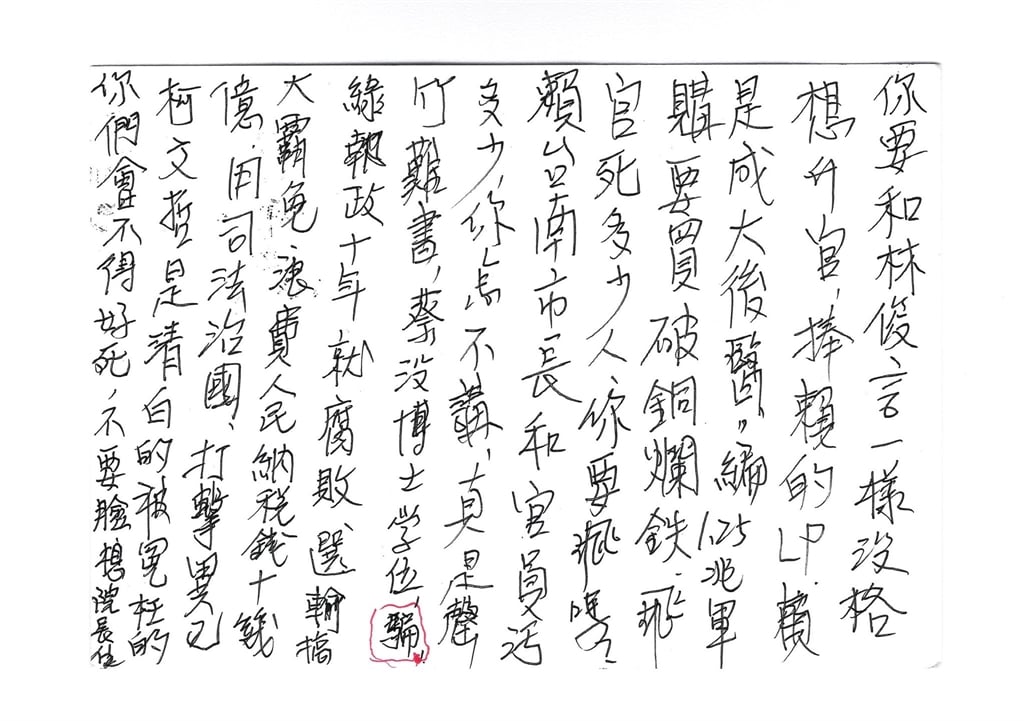 你要和林俊言一樣没格
想升官,捧賴的LP.賴
是成大後醫,編1.25兆軍
購要買破銅爛鉄.飛
官死多少人、你要飛嗎?
賴台南市長和官員污
多少,你怎不講,真是罄
竹難書,蔡没博士学位,騙!
綠執政十年就腐敗、選輸搞
大罷免.浪費人民納税錢十幾
億.用司法治國、打擊異己
柯文哲是清白的被冤枉的
你們會不得好死,不要臉想院長位